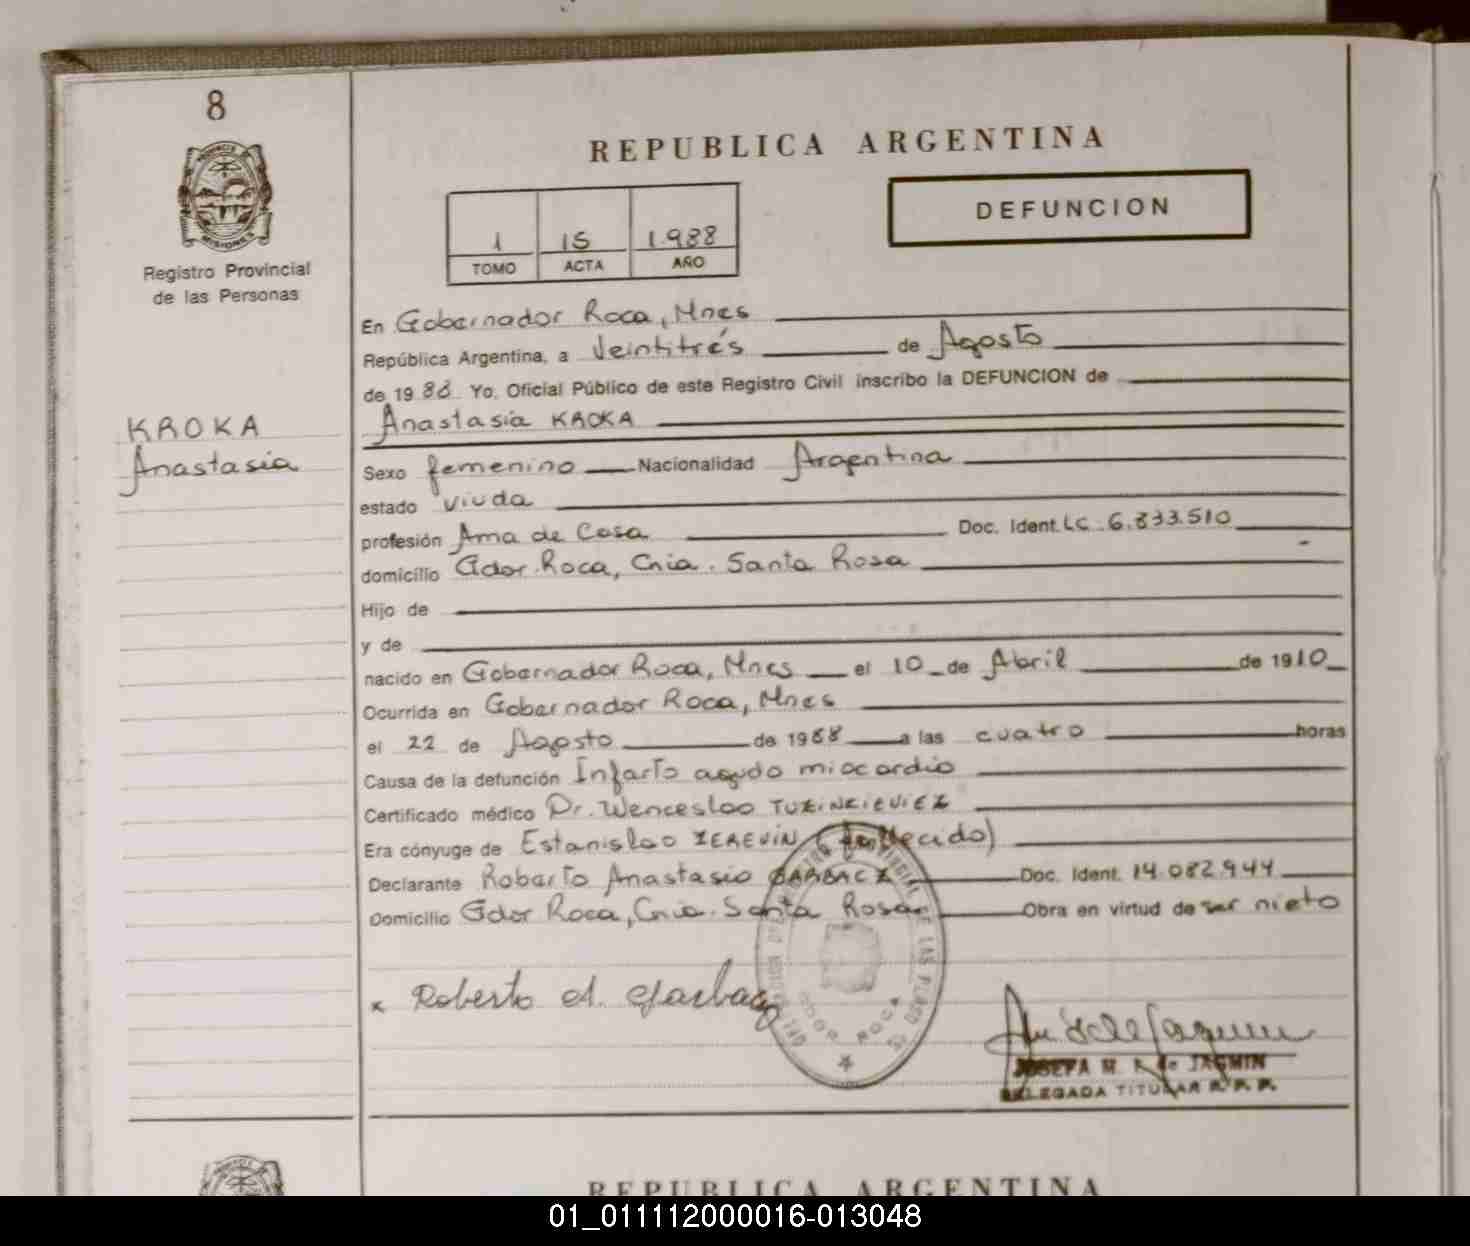 8
PROVINCIA DE
MISIONES
Registro Provincial
de las Personas
KROKA
Anastasia
REPUBLICA ARGENTINA
1 15 1.988
TOMO ACTA AÑO
DEFUNCION
En Gobernador Roca, Mnes
República Argentina, a Veintitrés de Agosto
de 1988 Yo, Oficial Público de este Registro Civil inscribo la DEFUNCION de
Anastasia KROKA
Sexo femenino Nacionalidad Argentina
estado viuda
profesión Ama de Casa Doc. Ident. LC. 6.833.510
domicilio Gdor. Roca, Cnia. Santa Rosa
Hijo de
y de
nacido en Gobernador Roca, Mnes el 10 de Abril de 1910
Ocurrida en Gobernador Roca, Mnes
el 22 de Agosto de 1988 a las cuatro horas
Causa de la defunción Infarto agudo miocardio
Certificado médico Dr. Wenceslao TUZINKIEVIEZ
Era cónyuge de Estanislao ZEREVIN (fallecido)
Declarante Roberto Anastasio GARBACZ Doc. Ident. 14.082.944
Domicilio Gdor Roca, Cnia. Santa Rosa Obra en virtud de ser nieto
x Roberto A. Garbacz
GDOR ROCA
JOSEFA M. K. de JASMIN
DELEGADA TITULAR R.P.P.
REPUBLICA ARGENTINA
01_011112000016-013048